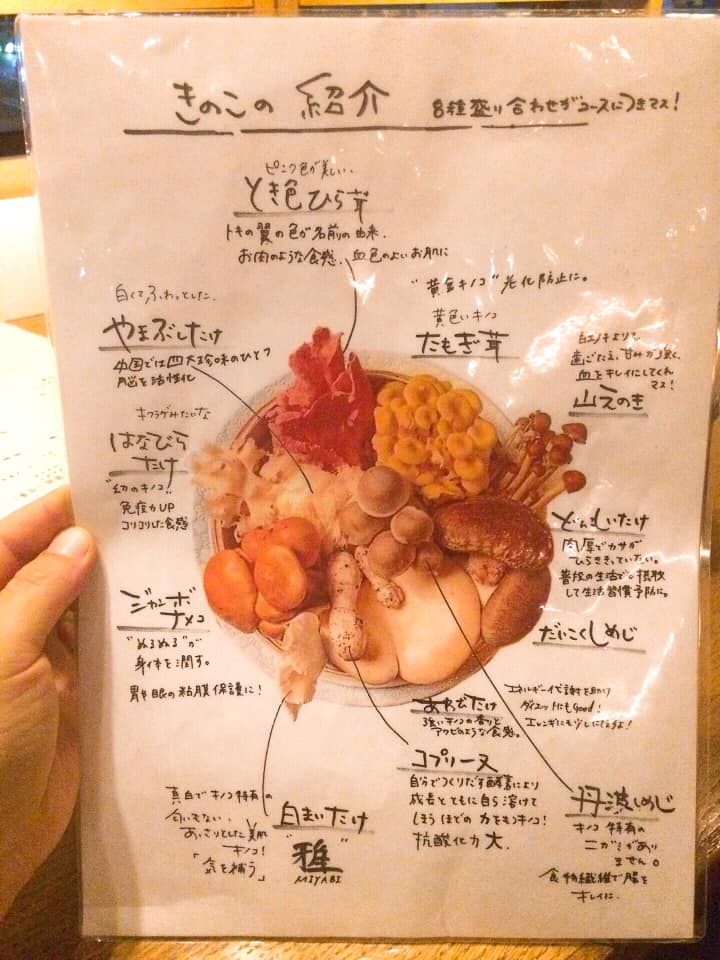 きのこの 紹介
8種盛り合わせがコースにつきマス!
ピンク色が美しい、
とき色ひら茸
トキの翼の色が名前の由来、
お肉のような食感、血色のよいお肌に
白くてふわっとした、
やまぶしたけ
中国では四大珍味のひとつ
脳を活性化
"黄金キノコ" 老化防止に。
黄色いキノコ
たもぎ茸
白エノキよりも
歯ごたえ、甘みが強く、
血をキレイにしてくれ
マス!
山えのき
キクラゲみたいな
はなびら
たけ
"幻のキノコ"
免疫力UP
コリコリした食感
どんこしいたけ
肉厚でカサが
ひらききっていない。
普段の生活で摂取
して生活習慣予防に。
ジャンボ
ナメコ
"ぬるぬる"が
身体を潤す。
胃や眼の粘膜保護に!
だいこくしめじ
エネルギー代謝を助け
ダイエットにもgood!
エレンギにも少しにてるよ!
あわびたけ
強いキノコの香りと
アワビのような食感。
コプリーヌ
自分でつくりだす酵素により
成長とともに自ら溶けて
しまうほどの力をもつキノコ!
抗酸化力大。
真白でキノコ特有の
匂いもない、
あっさりとした美肌
キノコ!
「気を補う」
白まいたけ
"雅"
MIYABI
丹波しめじ
キノコ特有の
ニガミがあり
ません。
食物繊維で腸を
キレイに。